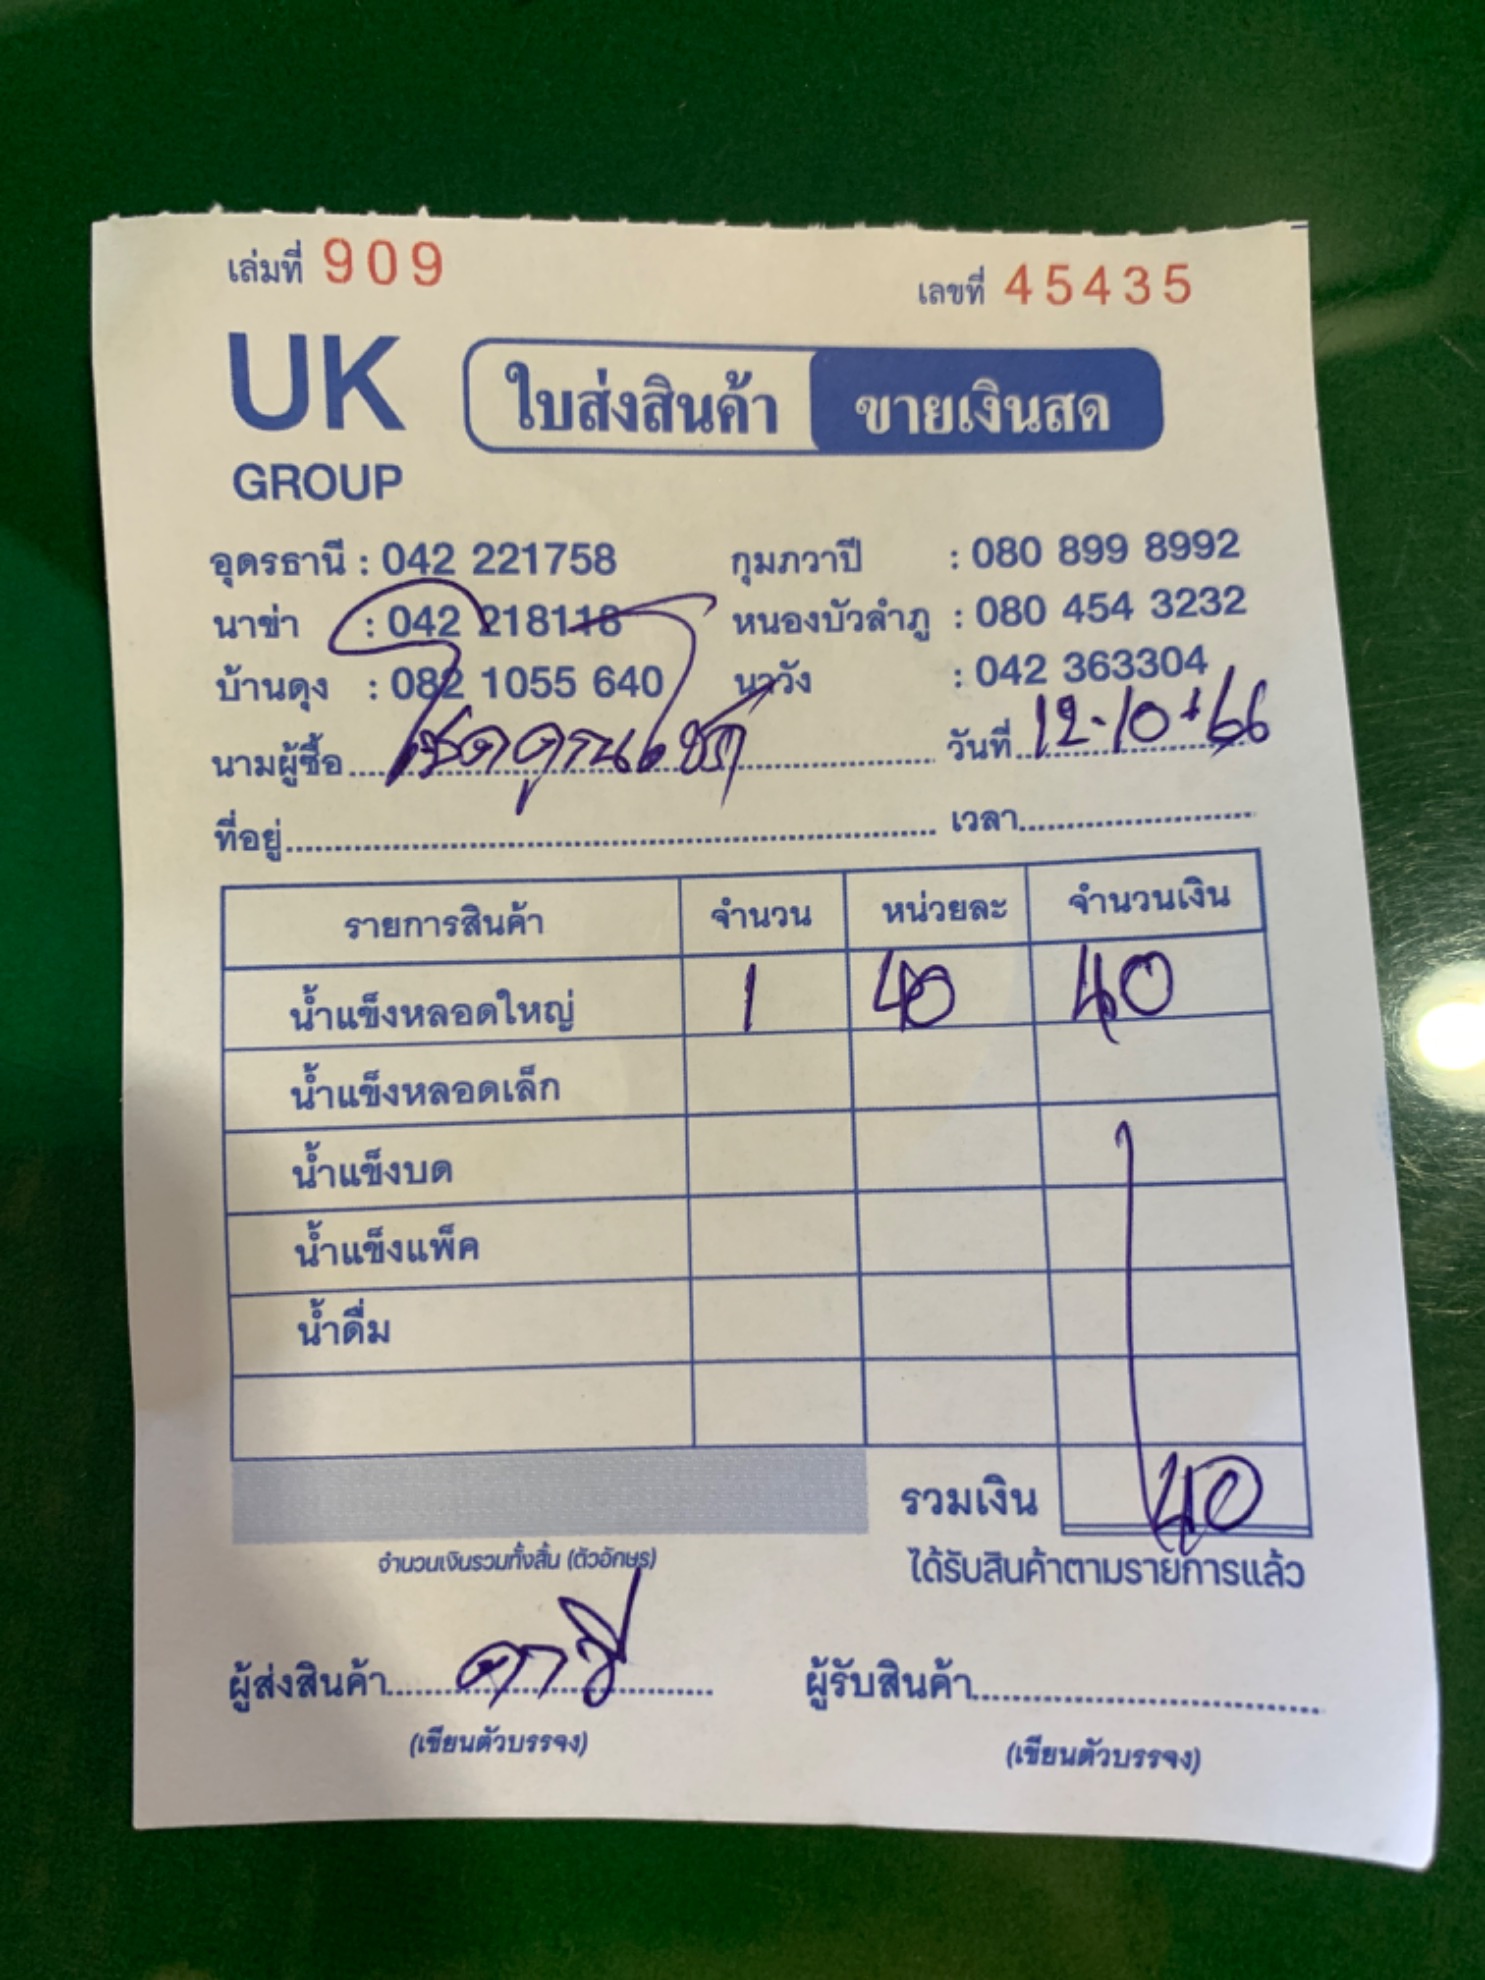 เล่มที่ 909 เลขที่ 45435
UK GROUP ใบส่งสินค้า ขายเงินสด
อุดรธานี : 042 221758 กุมภวาปี : 080 899 8992
นาข่า : 042 218118 หนองบัวลำภู : 080 454 3232
บ้านดุง : 082 1055 640 นาวัง : 042 363304
นามผู้ซื้อ วันที่ 12-10-66
ที่อยู่ เวลา
รายการสินค้า จำนวน หน่วยละ จำนวนเงิน
น้ำแข็งหลอดใหญ่ 1 40 40
น้ำแข็งหลอดเล็ก
น้ำแข็งบด
น้ำแข็งแพ็ค
น้ำดื่ม
รวมเงิน 40
จำนวนเงินรวมทั้งสิ้น (ตัวอักษร) ได้รับสินค้าตามรายการแล้ว
ผู้ส่งสินค้า ผู้รับสินค้า
(เขียนตัวบรรจง) (เขียนตัวบรรจง)